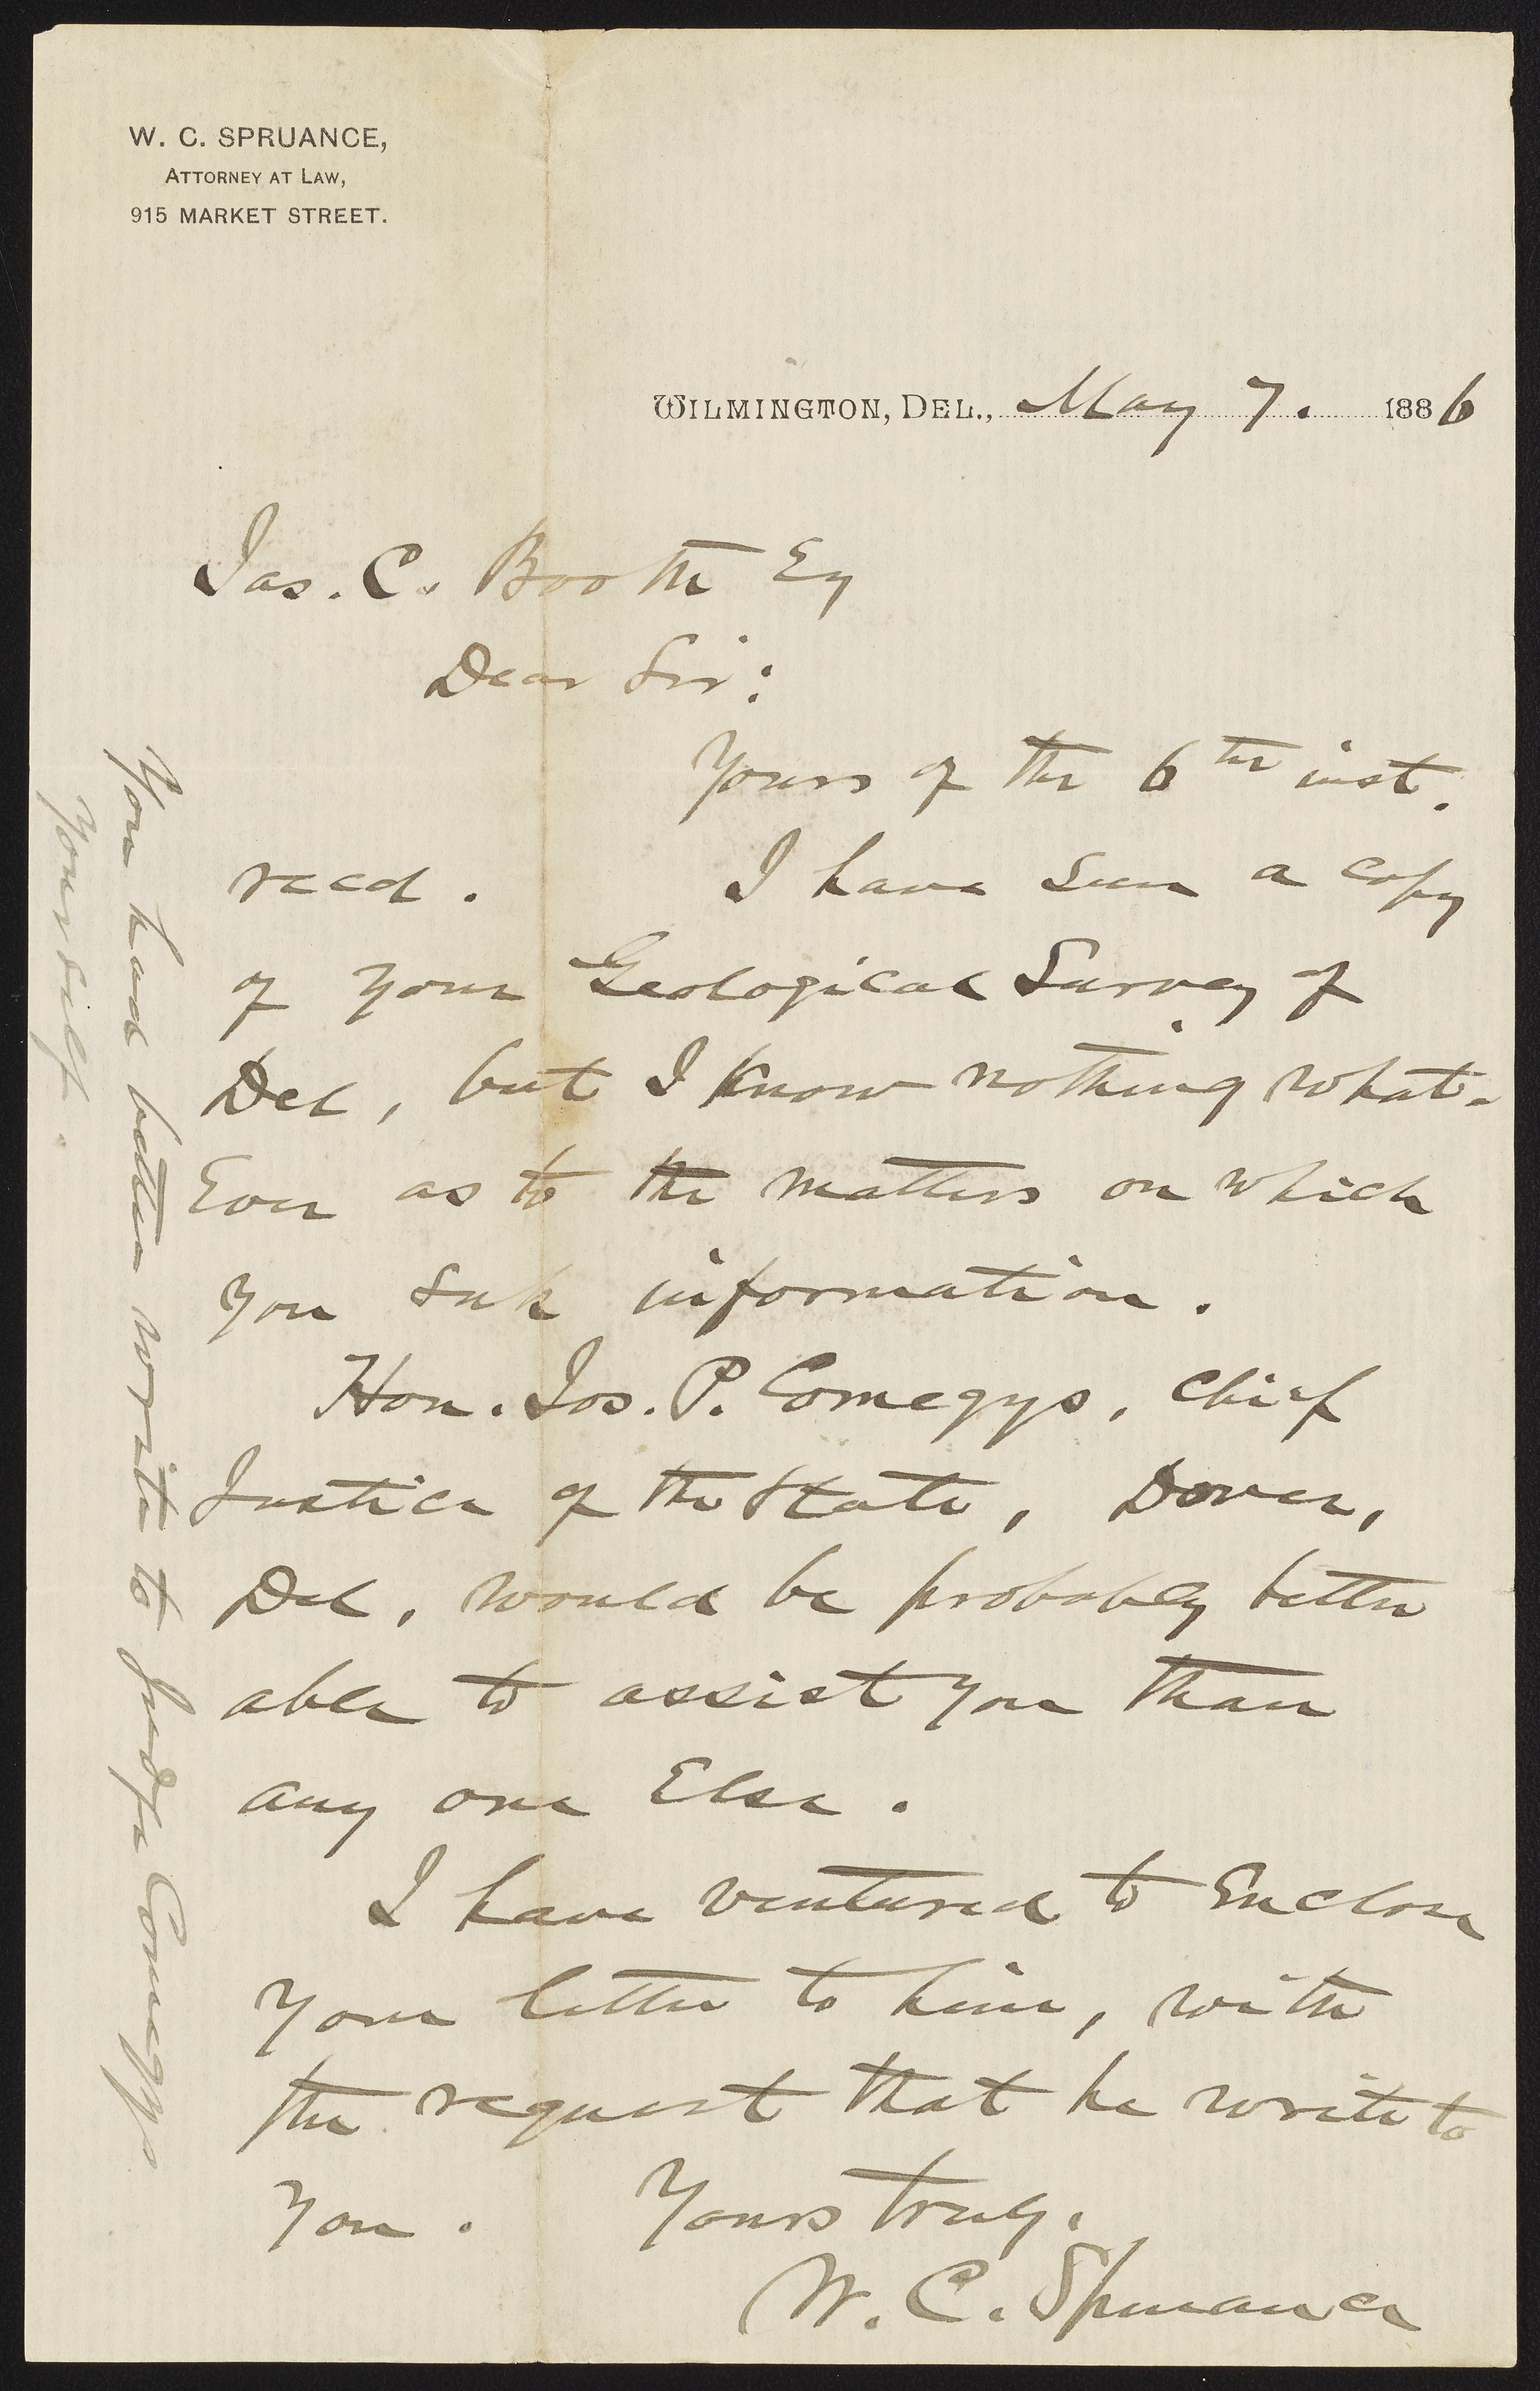 W. C. SPRUANCE,
ATTORNEY AT LAW,
915 MARKET STREET.
WILMINGTON, DEL., May 7. 1886
Jas. C. Booth Esq
Dear Sir:
Yours of the 6th inst.
recd. I have seen a copy
of your Geological Survey of
Del, but I know nothing what-
Ever as to the matters on which
you seek information.
Hon. Jos. P. Comegys, Chief
Justice of the State, Dover,
Del, would be probably better
able to assist you than
any one Else.
I have ventured to Enclose
your letter to him, with
the request that he write to
you. Yours truly.
W. C. Spruance
You had better write to Judge Comegys
yourself.